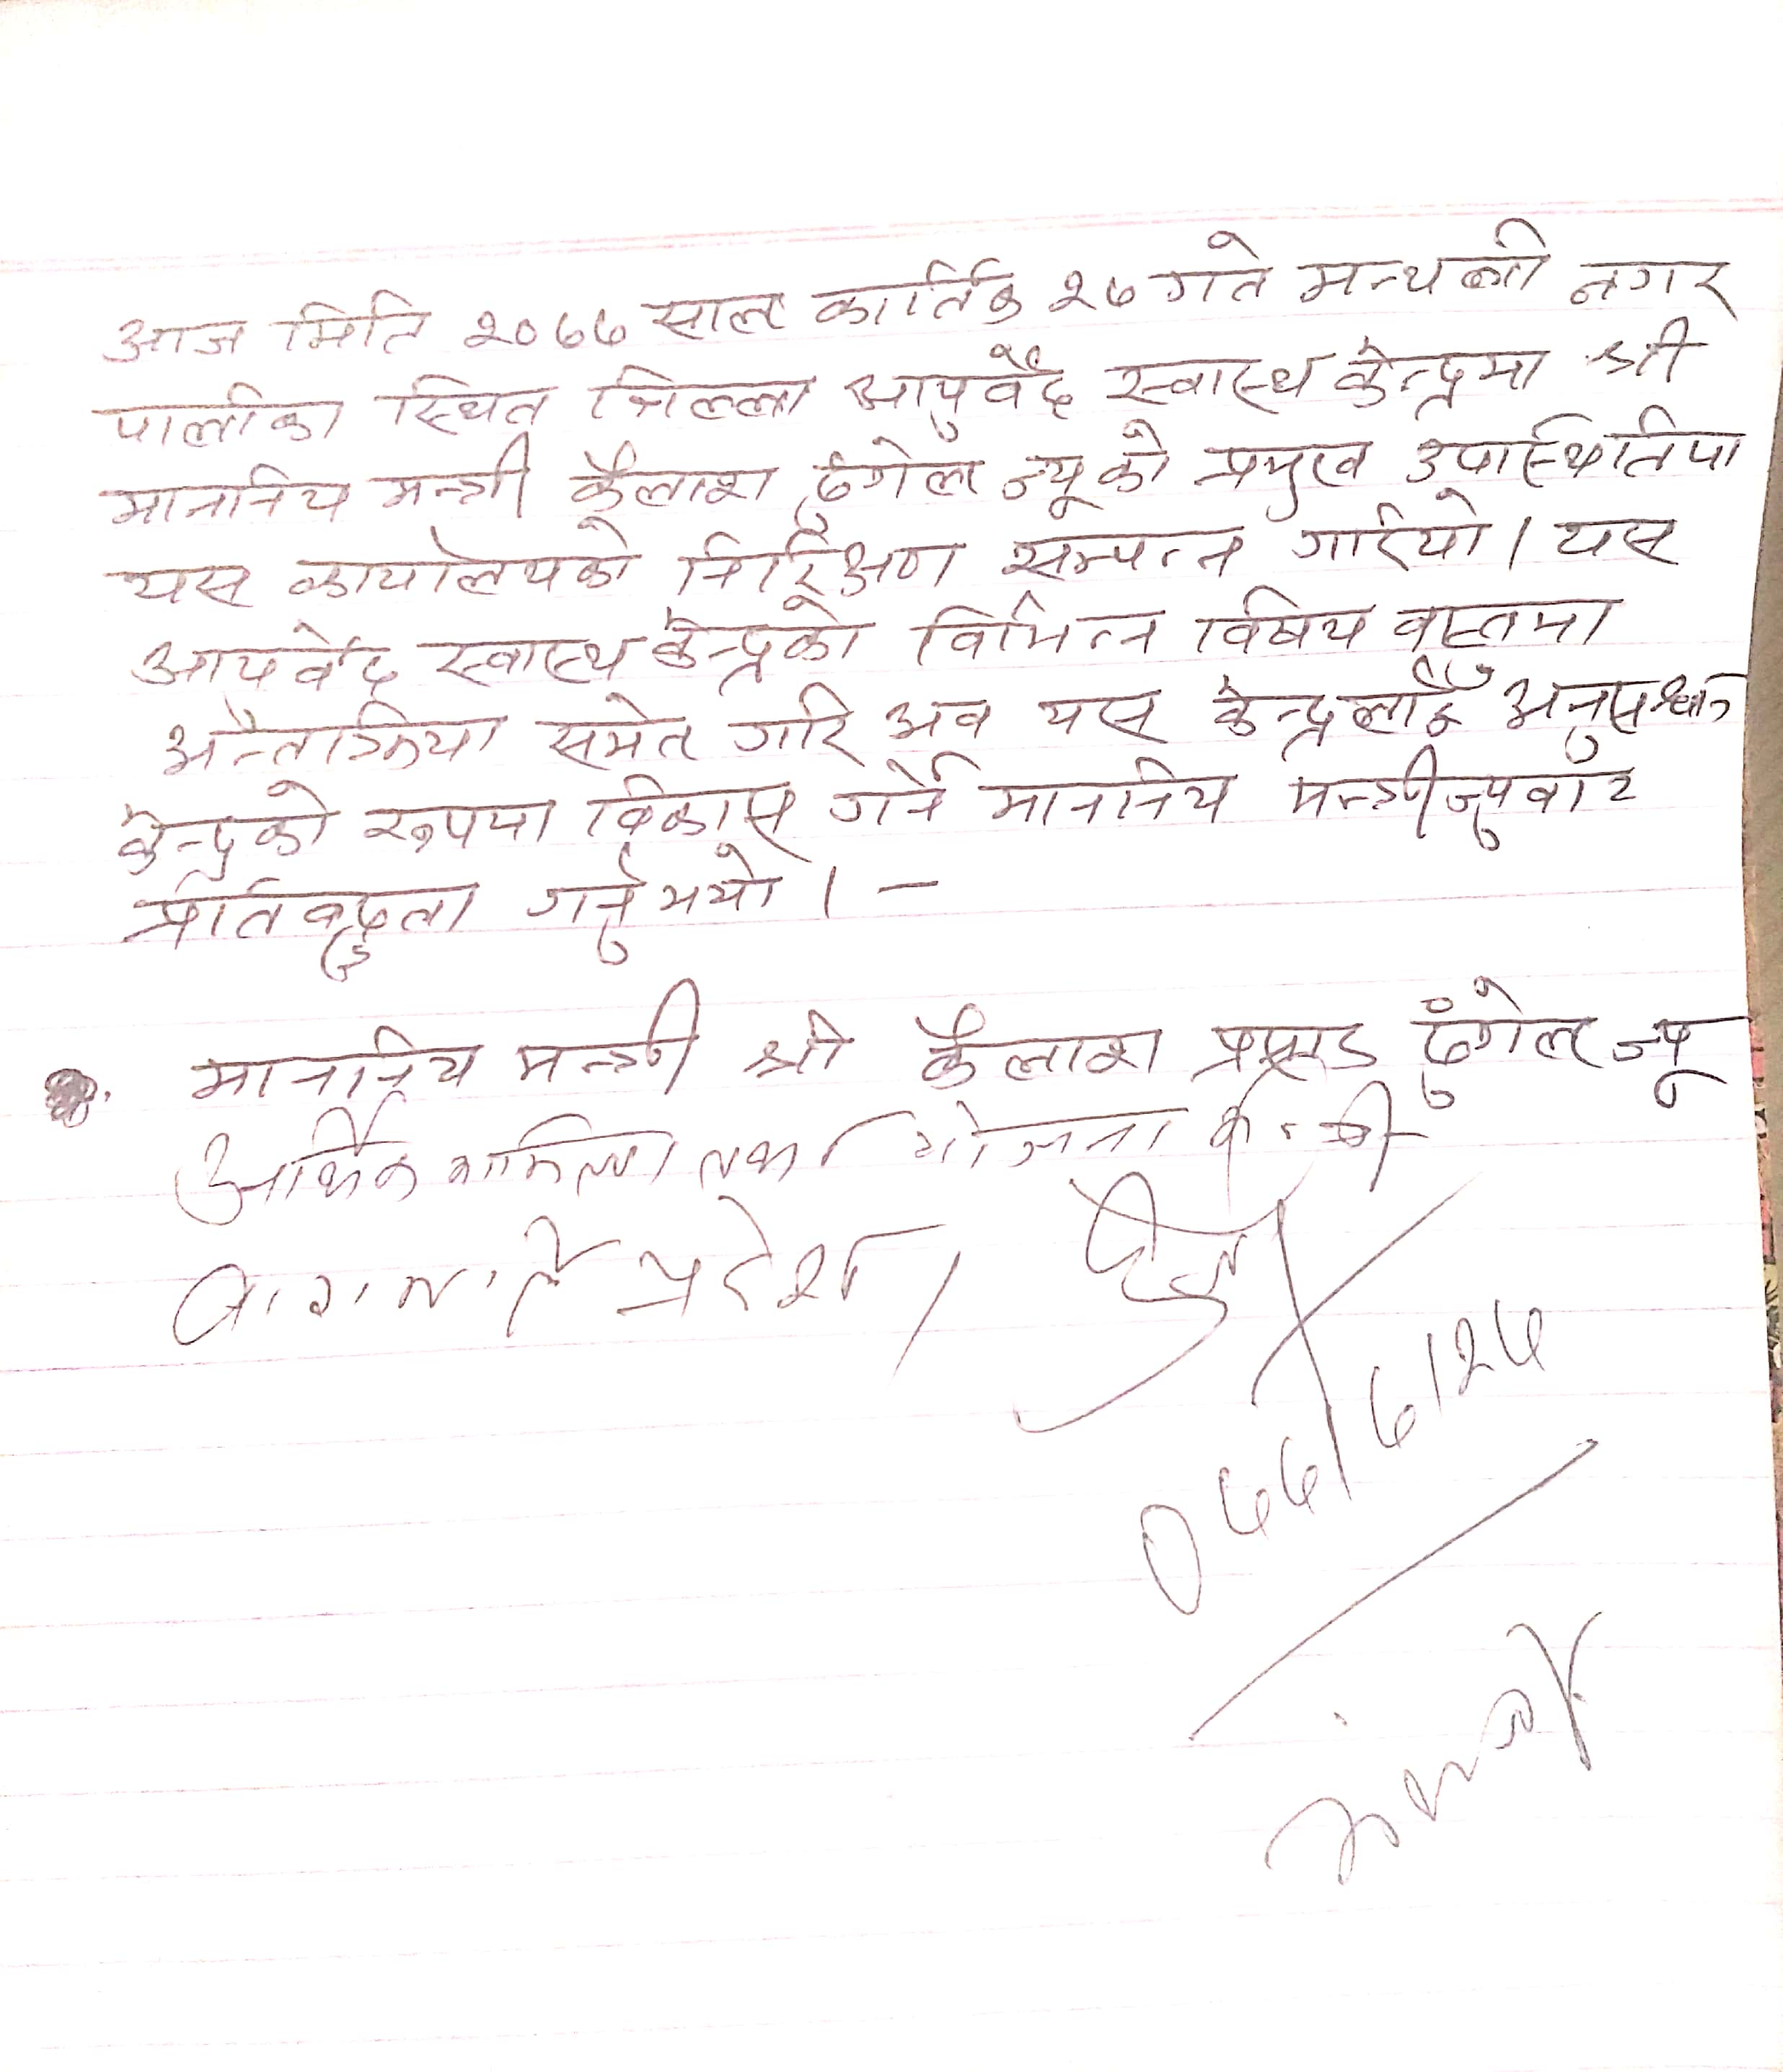 आज मिति २०७७ साल कार्तिक २७ गते मन्थली नगर
पालीका स्थित जिल्ला आयुर्वेद स्वास्थ केन्द्रमा श्री
माननिय मन्त्री कैलाश ढुंगेल ज्यूको प्रमुख उपस्थितिमा
यस कार्यालयको निरिक्षण सम्पन्न गरियो। यस
आयुर्वेद स्वास्थ केन्द्रको विभिन्न विषय वस्तुमा
अन्तक्रिया समेत गरि अब यस केन्द्रलाई अनुसन्धान
केन्द्रको रूपमा विकास गर्ने माननिय मन्त्रीज्युबाट
प्रतिबद्धता गर्नुभयो। -
माननिय मन्त्री श्री कैलाश प्रसाद ढुंगेल ज्यू
आर्थिक मामिला तथा योजना मन्त्री
बागमती प्रदेश।
०७७/७/२७